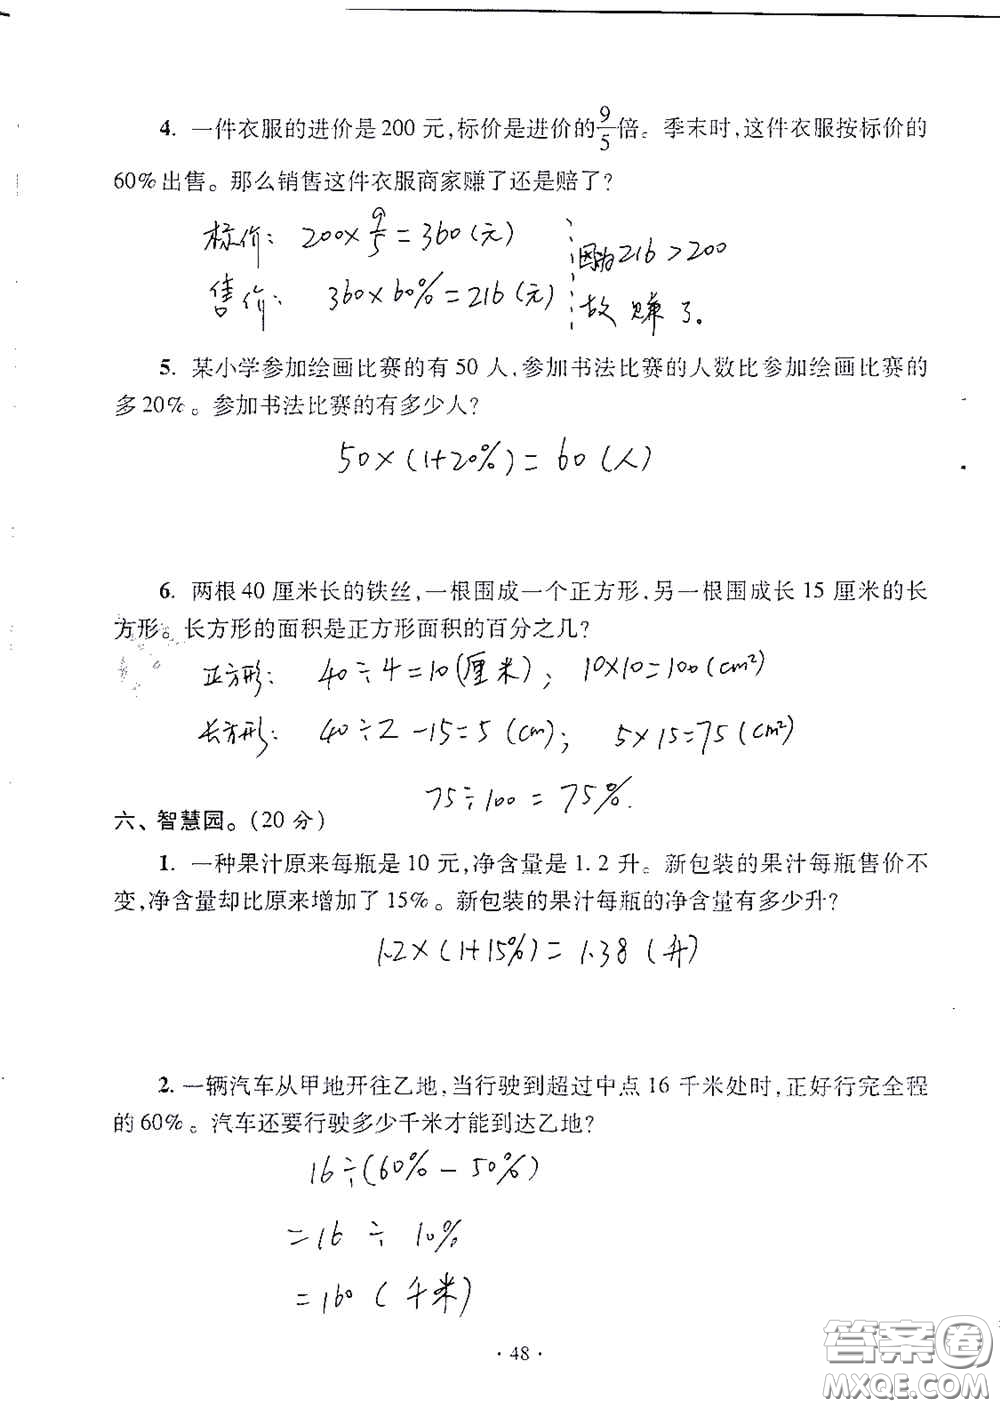 4. 一件衣服的进价是200元,标价是进价的9/5倍。季末时,这件衣服按标价的
60%出售。那么销售这件衣服商家赚了还是赔了?
标价: 200×9/5=360(元)
售价: 360×60%=216(元)
因为216>200
故赚了。
5. 某小学参加绘画比赛的有50人,参加书法比赛的人数比参加绘画比赛的
多20%。参加书法比赛的有多少人?
50×(1+20%)=60(人)
6. 两根40厘米长的铁丝,一根围成一个正方形,另一根围成长15厘米的长
方形。长方形的面积是正方形面积的百分之几?
正方形: 40÷4=10(厘米); 10×10=100(cm²)
长方形: 40÷2-15=5(cm); 5×15=75(cm²)
75÷100=75%.
六、智慧园。(20分)
1. 一种果汁原来每瓶是10元,净含量是1.2升。新包装的果汁每瓶售价不
变,净含量却比原来增加了15%。新包装的果汁每瓶的净含量有多少升?
1.2×(1+15%)=1.38(升)
2. 一辆汽车从甲地开往乙地,当行驶到超过中点16千米处时,正好行完全程
的60%。汽车还要行驶多少千米才能到达乙地?
16÷(60%-50%)
=16÷10%
=160(千米)
·48·
答案圈
MXQE.COM